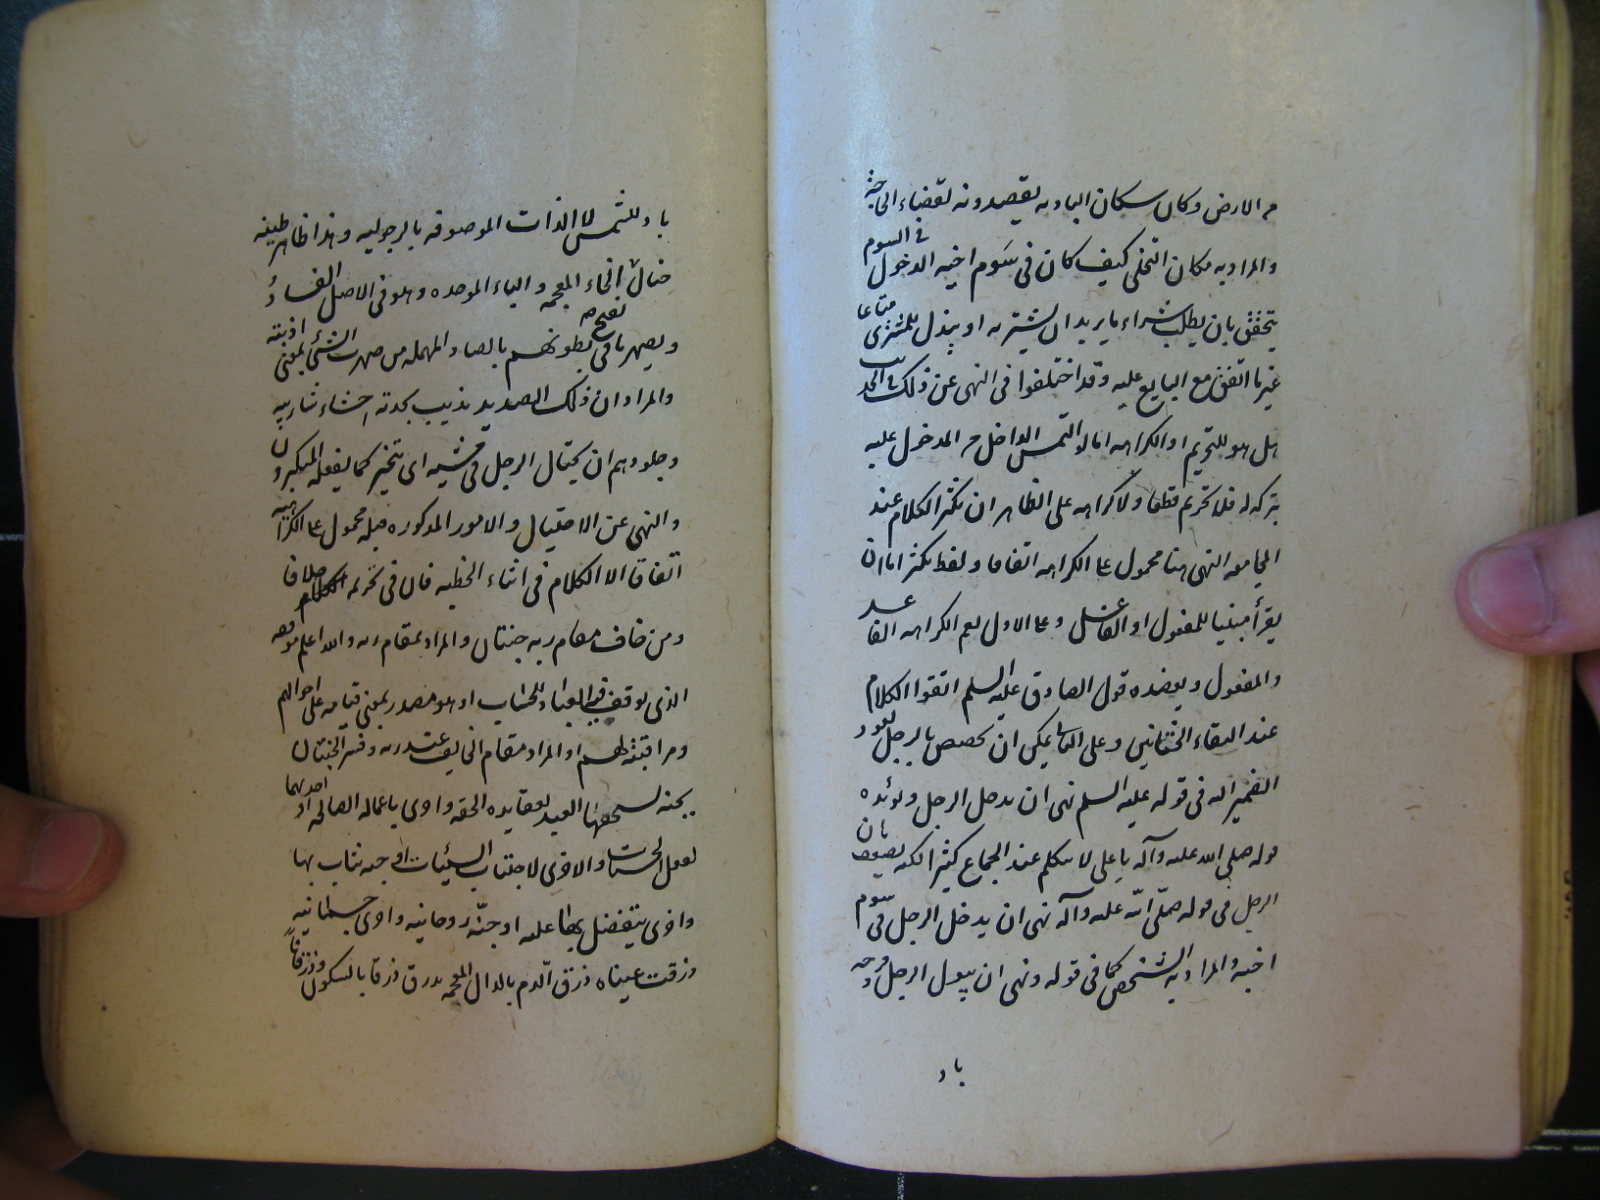 من الارض وكان سكان البادية يقصدونه لقضاء الحاجة
والمراد به مكان التخلي كيف كان في سَوم اخيه الدخول في السوم
يتحقق بان يطلب شراء ما يريد ان يشتريه او يبذل للمشتري متاعا
غير ما اتفق مع البايع عليه وقد اختلفوا في النهي عن ذلك
هل هو للتحريم او الكراهه اما لو التمس الداخل من المدخول عليه
تركه له فلا تحريم قطعا ولا كراهه على الظاهر ان يكثر الكلام عند
المجامعه النهي هنا محمول على الكراهه اتفاقا ولفظ يكثر اما ان
يقرأ مبنيا للمفعول او الفاعل وعلى الاول يعم الكراهه الفاعل
والمفعول ويعضده قول الصادق عليه السلم اتقوا الكلام
عند التقاء الختانين وعلى الثاني يمكن ان يخصص بالرجل لعود
الضمير اليه في قوله عليه السلم نهى ان يدخل الرجل ويؤيده
قوله صلى الله عليه وآله يا علي لا تتكلم عند الجماع كثيرا لكنه يضعف بان
الرجل في قوله صلّى الله عليه وآله نهى ان يدخل الرجل في سوم
اخيه والمراد به الشخص كما في قوله ونهى ان يبول الرجل وفرجه
باد
باد للشمس لا الذات الموصوفه بالرجوليه وهذا ظاهر طينه
خبال الخاء المعجمه والباء الموحده وهو في الاصل الفساد
ويصهر ما في بطونهم بالصاد المهمله من صهرت الشئ بمعنى اذبته
والمراد ان ذلك الصديد يذيب بحدته احشاء شاربيه
وجلودهم ان يختال الرجل في مشيه اي يتبختر كما يفعله المتكبرون
والنهي عن الاختيال والامور المذكوره قبله محمول على الكراهيه
اتفاقا الا الكلام في اثناء الخطبه فان في تحريمه خلافا
ومن خاف مقام ربه جنتان والمراد بمقام ربه والله اعلم موقفه
الذي يوقف فيه العباد للحساب او هو مصدر بمعنى قيامه على احوالهم
ومراقبته لهم او المراد مقام الخايف عند ربه وفسر الجنتان
بجنه يستحقها العبد بعقايده الحقه واخرى باعماله الصالحه او احديهما
لفعل الحسنات والاخرى لاجتناب السيئات او جنه يثاب بها
واخرى يتفضل بها عليه او جنّه روحانيه واخرى جسمانيه
وذرفت عيناه ذرق الدم بالذال المعجمه يذرق ذرقا بالسكون وذرقانا